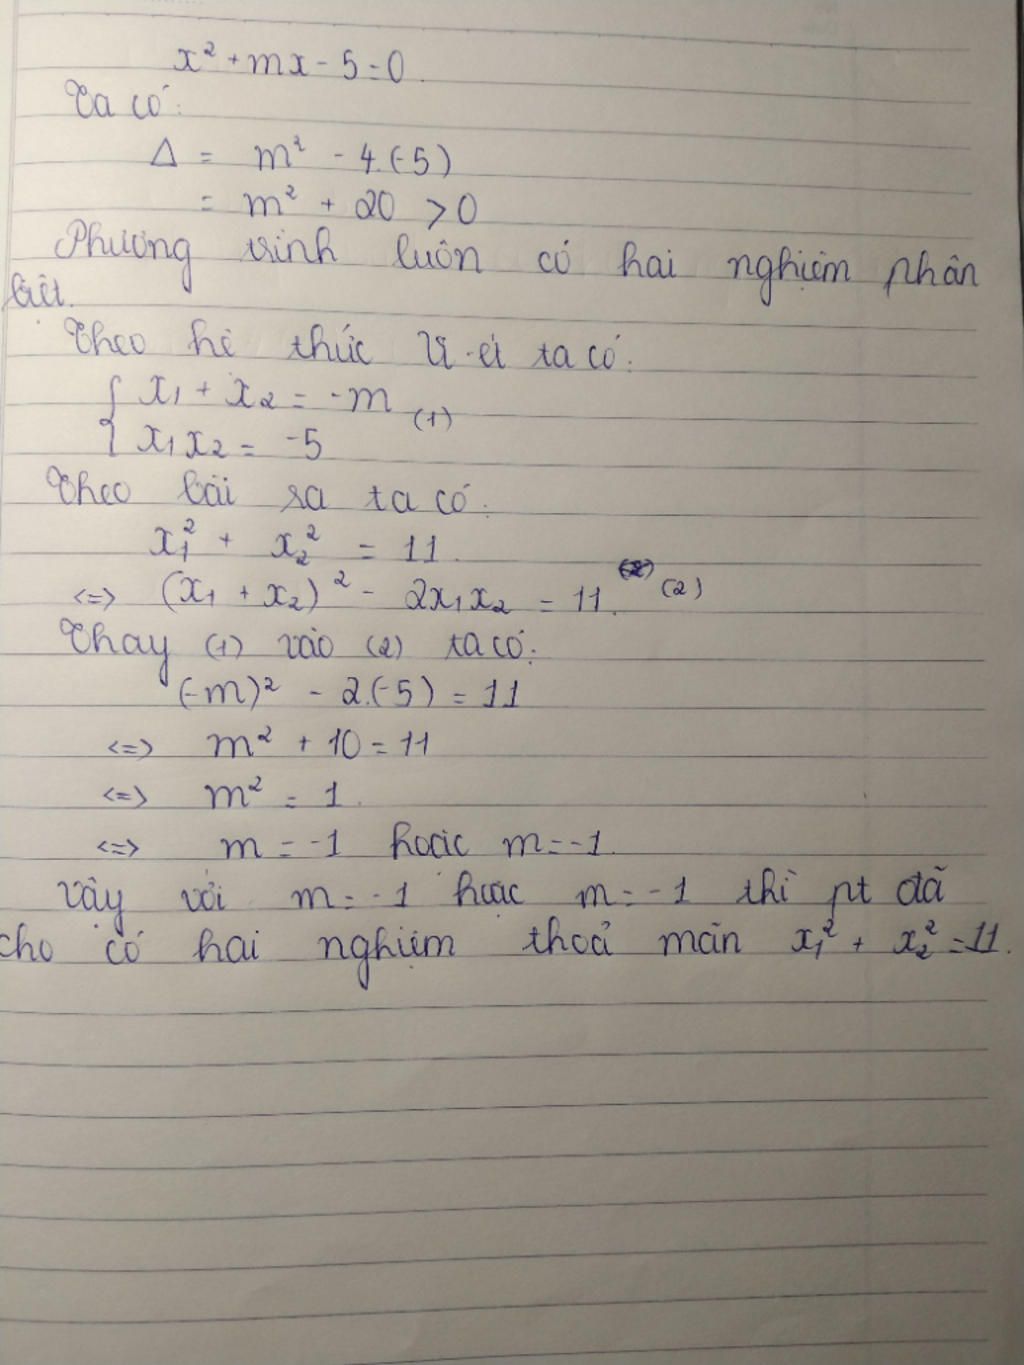 x² + mx - 5 = 0.
Ta có:
Δ = m² - 4.(-5)
= m² + 20 > 0
Phương trình luôn có hai nghiệm phân
biệt.
Theo hệ thức Vi-ét ta có:
{ x₁ + x₂ = -m
(1)
x₁x₂ = -5
Theo bài ra ta có:
x₁² + x₂² = 11.
<=> (x₁ + x₂)² - 2x₁x₂ = 11. (2)
Thay (1) vào (2) ta có:
(-m)² - 2.(-5) = 11
<=> m² + 10 = 11
<=> m² = 1.
<=> m = -1 hoặc m = -1.
Vậy với m = -1 hoặc m = -1 thì pt đã
cho có hai nghiệm thoả mãn x₁² + x₂² = 11.